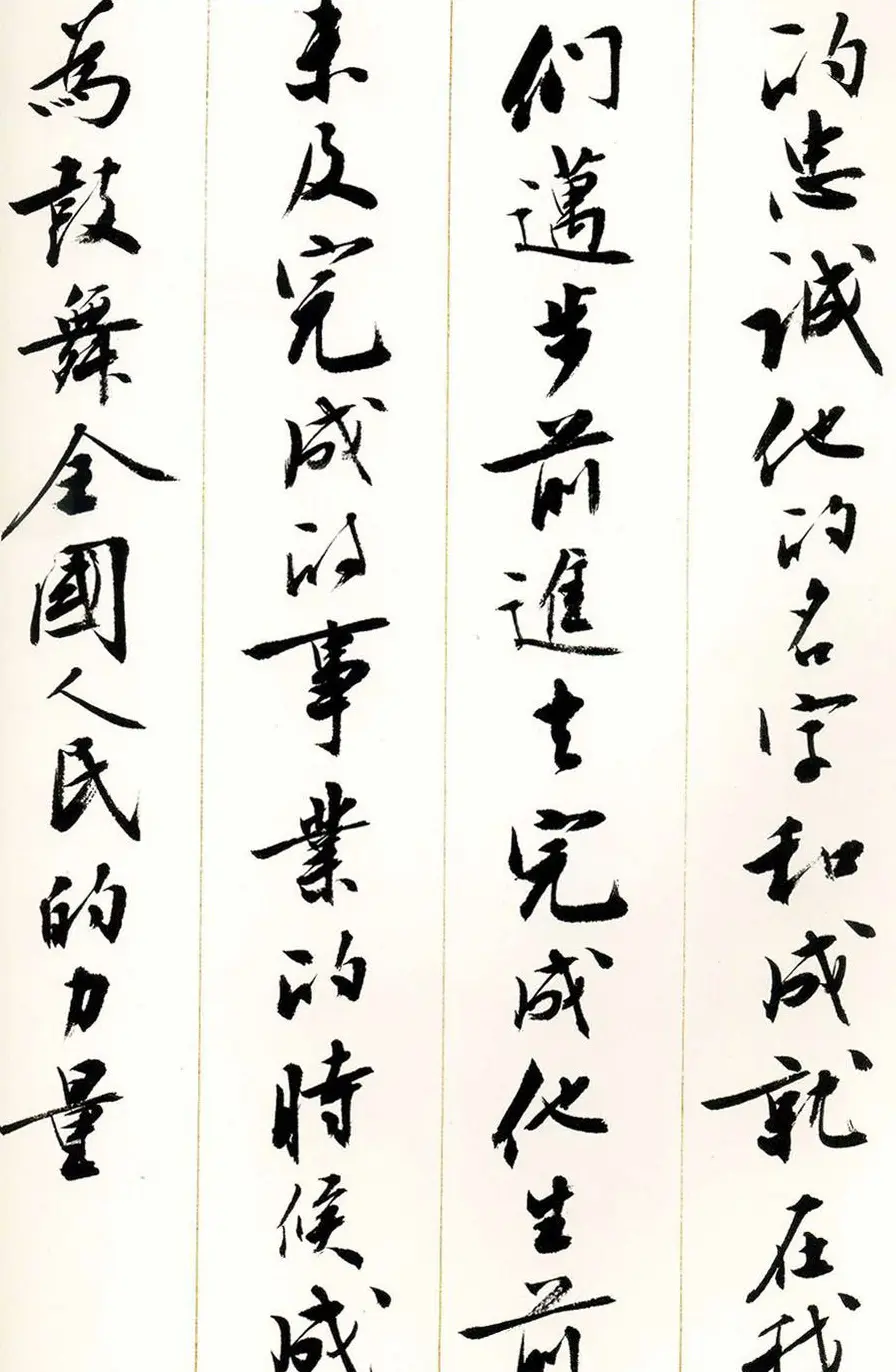 的忠誠他的名字和成就在我
們邁步前進去完成他生前
未及完成的事業的時候成
為鼓舞全國人民的力量